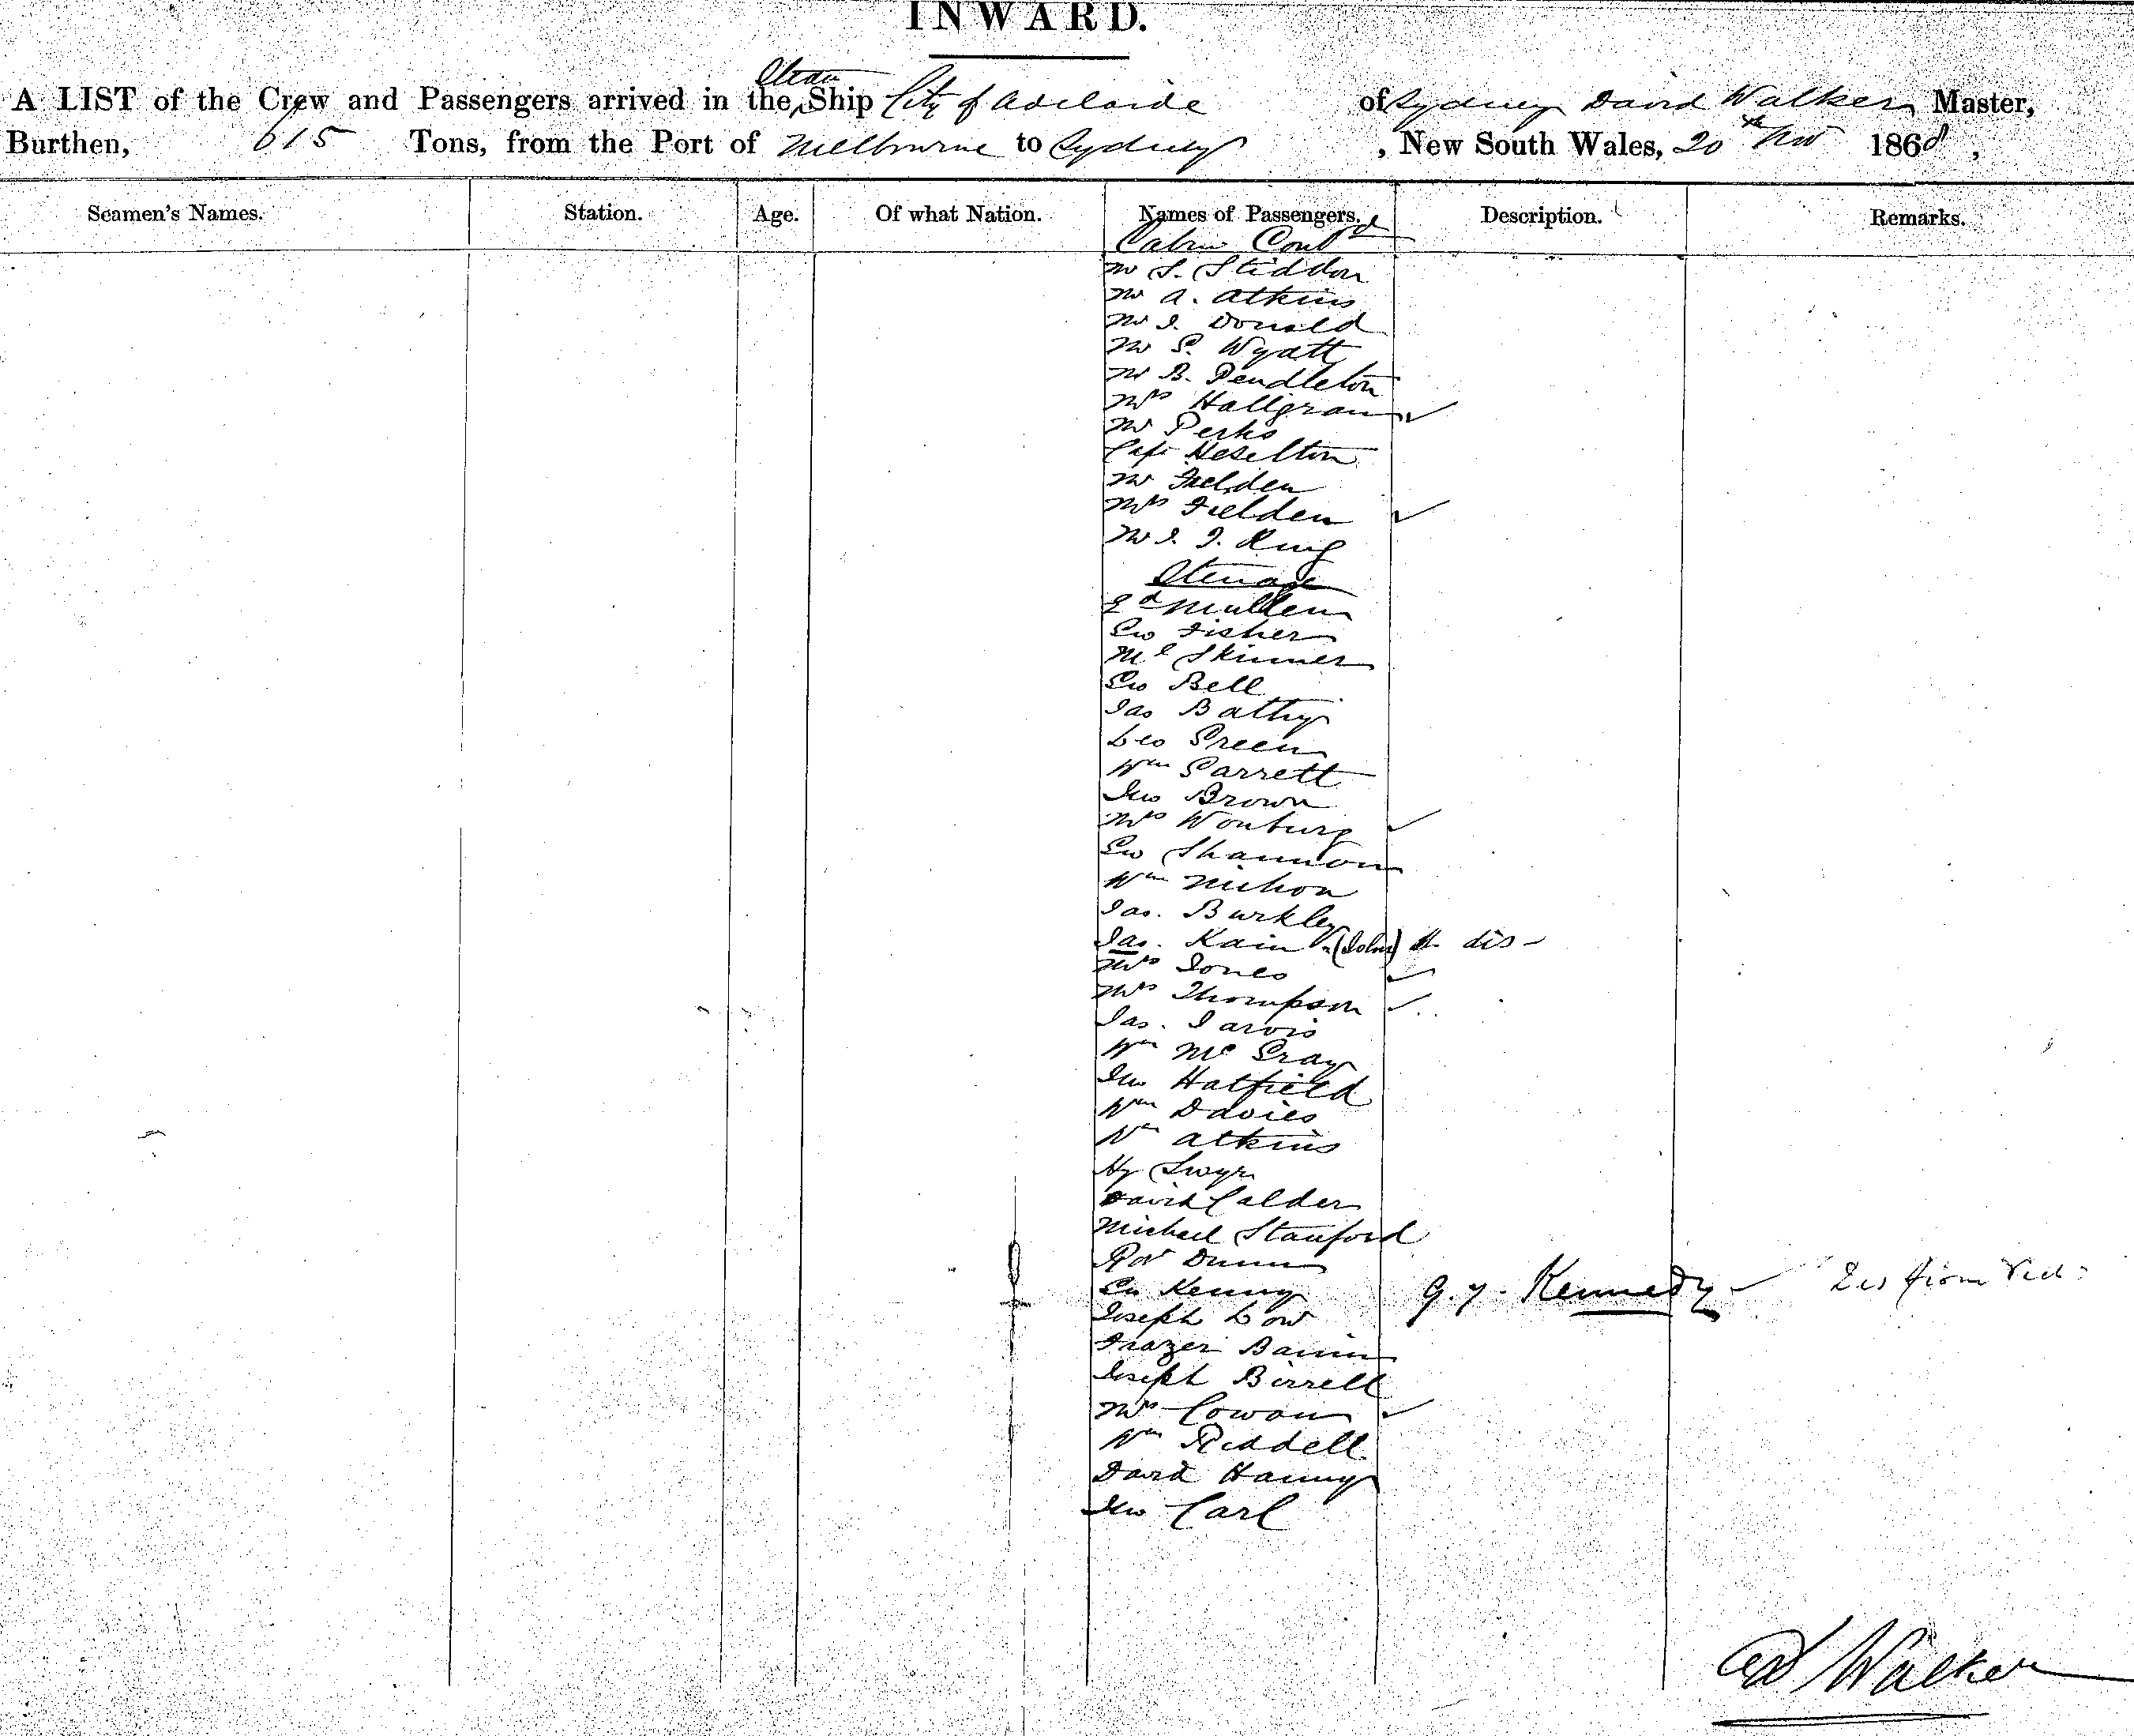 INWARD.
A LIST of the Crew and Passengers arrived in the Steam Ship City of Adelaide of Sydney David Walker Master,
Burthen, 615 Tons, from the Port of Melbourne to Sydney, New South Wales, 20th Nov 1868,
Seamen's Names. Station. Age. Of what Nation. Names of Passengers. Description. Remarks.
Cabin Contd
Mr S. Sliddon
Mr A. Atkins
Mr J. Donald
Mr G. Wyatt
Mr B. Pendleton
Mrs Hallgran
Mr Perks
Capt Heselton
Mr Fielden
Mrs Fielden
Mr J. J. King
Steerage
Ed Mullen
Geo Fisher
Ml Skinner
Geo Bell
Jas Bathy
Leo Green
Wm Garrett
Jno Brown
Mrs Wonburg
Geo Shannon
Wm
Jas. Burkley
Jas. Kain (John) dis
Mrs Jones
Mrs Thompson
Jas. Jarvis
Wm Mc Gray
Jno Hatfield
Wm Davies
Wm Atkins
Hy
David Calder
Michael Stanford
Robt Dunn
Geo Kenny G. Y. Kennedy from Vic:
Joseph Low
Frazer
Joseph Birrell
Mrs Cowan
Wm Riddell
David Hanny
Jno Carl
Walker